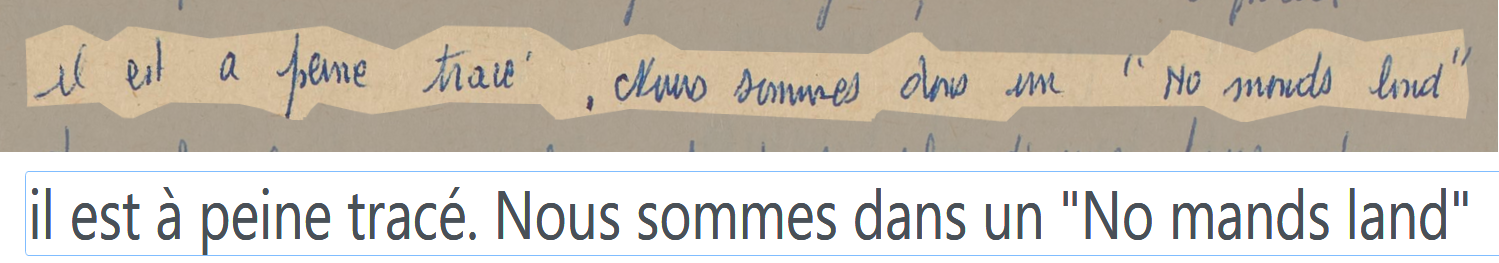 il est a peine tracé. Nous sommes dans un "No mands land"
il est à peine tracé. Nous sommes dans un "No mands land"